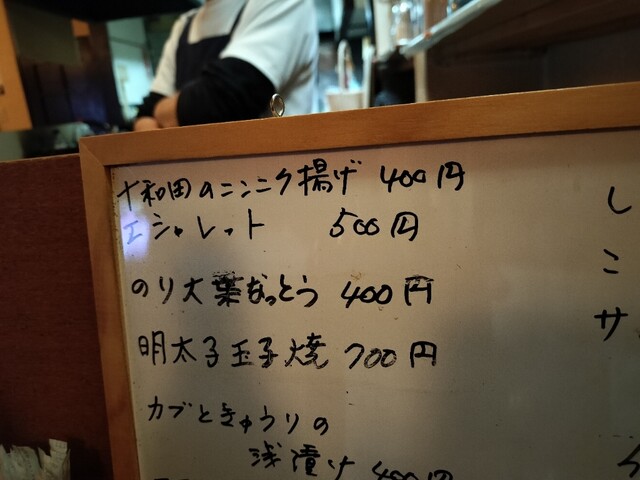 十和田のニンニク揚げ 400円
エシャレット 500円
のり大葉なっとう 400円
明太子玉子焼 700円
カブときゅうりの
浅漬け 400円
し
こ
サ